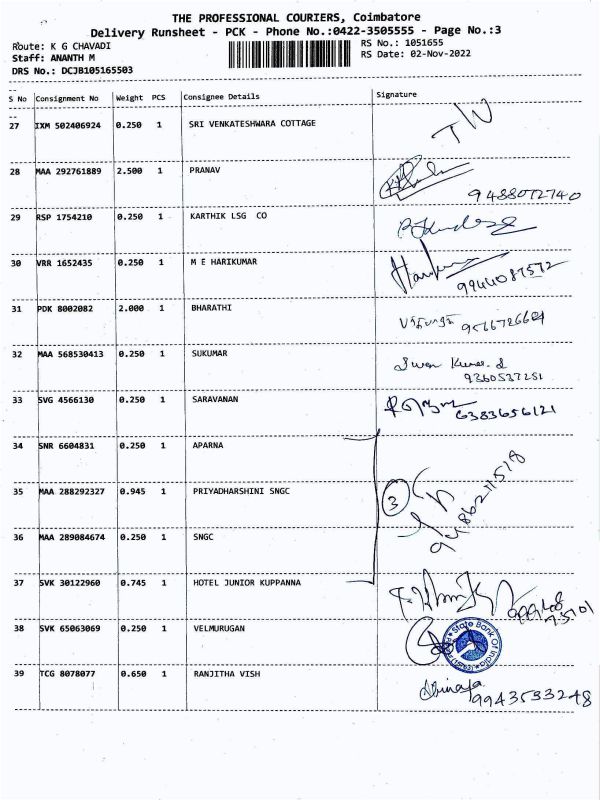 THE PROFESSIONAL COURIERS, Coimbatore
Delivery Runsheet - PCK - Phone No.:0422-3505555 - Page No.:3
Route: K G CHAVADI
RS No.: 1051655
Staff: ANANTH M
RS Date: 02-Nov-2022
DRS No.: DCJB105165503
S No Consignment No Weight PCS Consignee Details Signature
27 IXM 502406924 0.250 1 SRI VENKATESHWARA COTTAGE
28 MAA 292761889 2.500 1 PRANAV 9488072740
29 RSP 1754210 0.250 1 KARTHIK LSG CO
30 VRR 1652435 0.250 1 M E HARIKUMAR 9944087572
31 PDK 8002082 2.000 1 BHARATHI
32 MAA 568530413 0.250 1 SUKUMAR
9360537251
33 SVG 4566130 0.250 1 SARAVANAN 6383656121
34 SNR 6604831 0.250 1 APARNA
35 MAA 288292327 0.945 1 PRIYADHARSHINI SNGC 3
36 MAA 289084674 0.250 1 SNGC
37 SVK 30122960 0.745 1 HOTEL JUNIOR KUPPANNA
38 SVK 65063069 0.250 1 VELMURUGAN State Bank Of India
39 TCG 8078077 0.650 1 RANJITHA VISH 9943533248